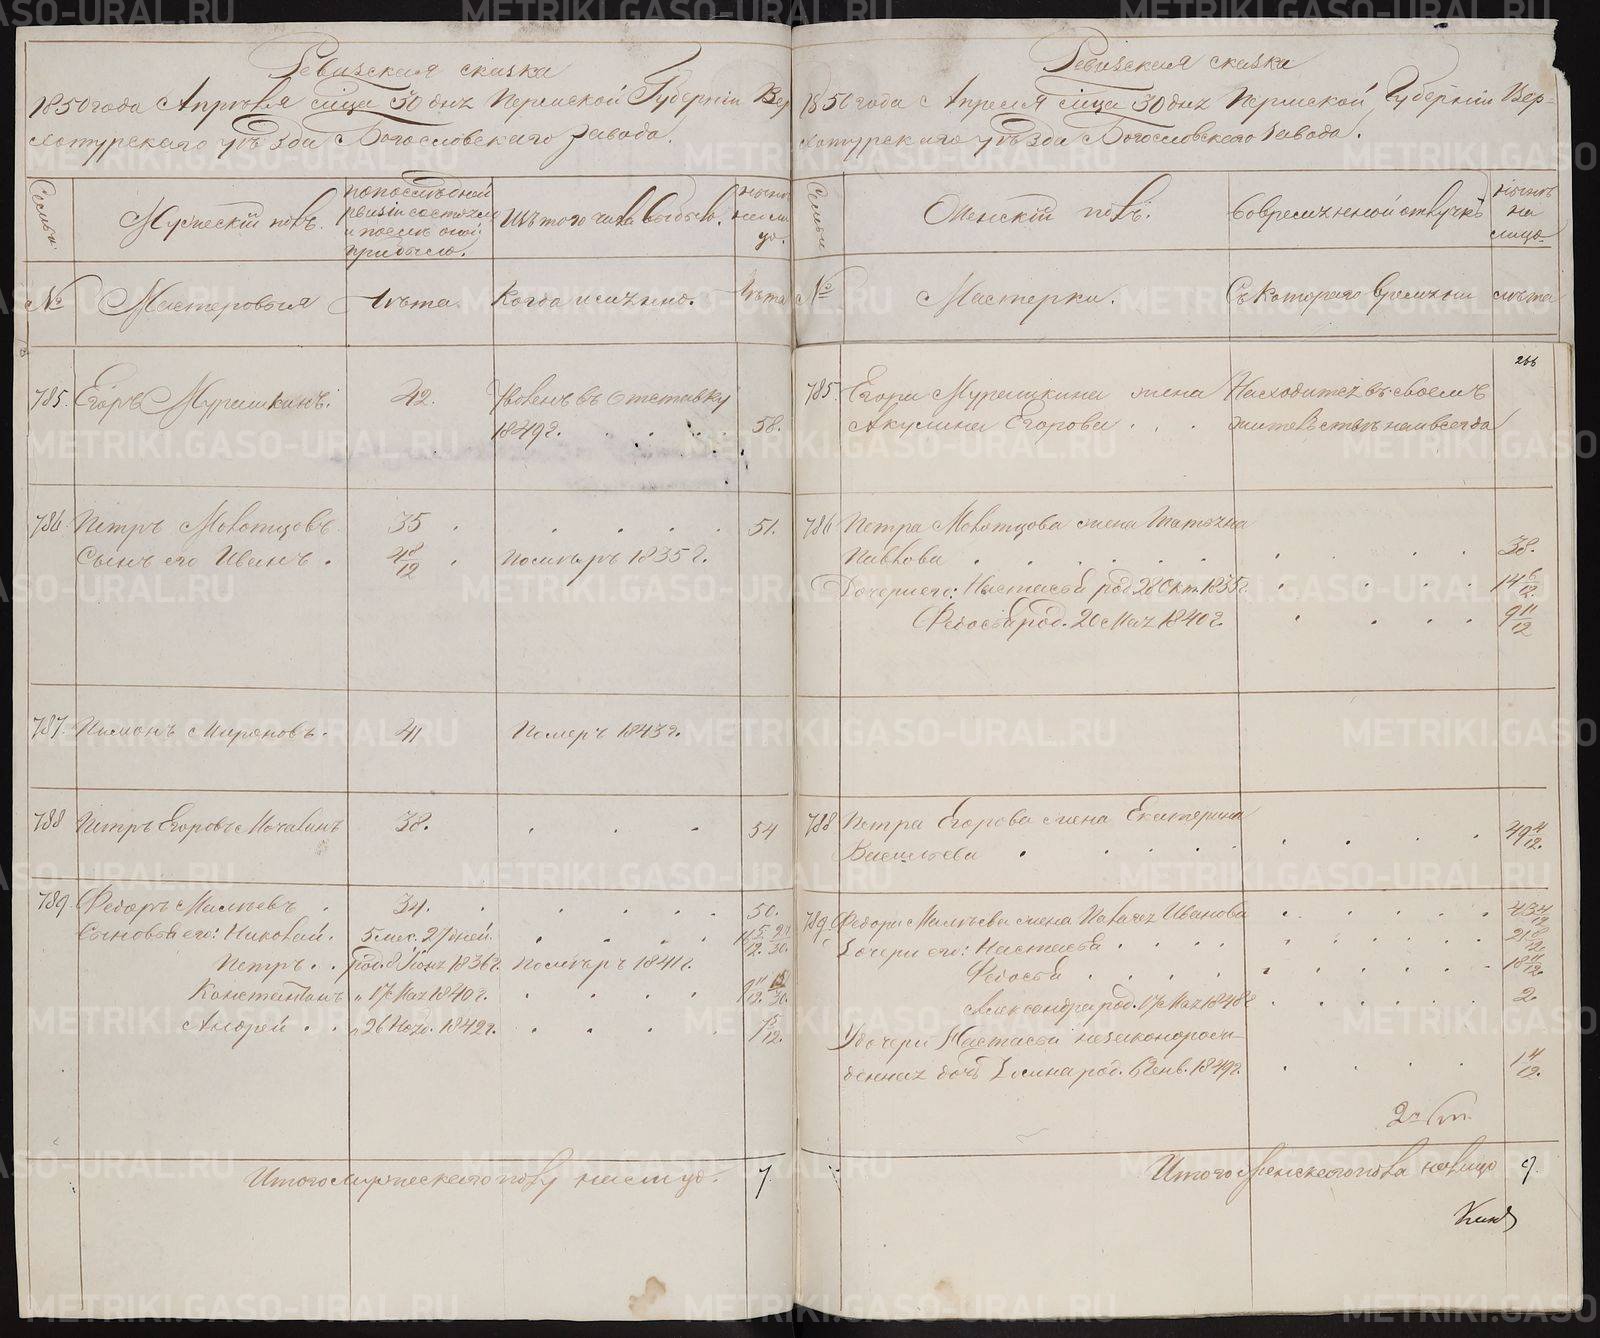 Ревизская сказка
1850 года Апреля м̃ца 30 дня Пермской Губерніи Вер
хотурскаго уѣзда Богословскаго завода.
Семьи
Мужескій полъ.
по послѣдней
ревизіи состояло
и послѣ оной
прибыло.
Изъ того числа выбыло.
ныне
на ли
цо.
№ Мастеровыя Лѣта. Когда имянно. Лѣта
785. Егоръ Мурашкинъ. 42. Уволенъ въ отставку
1849 г. 58.
786 Петръ Молотцовъ 35 51.
Сынъ его Иванъ. 4 8/12 Помѣръ 1835 г.
787. Пимонъ Мироновъ. 41 Померъ 1843 г.
788 Петръ Егоровъ Мочалинъ 38. 54
789. Федоръ Малѣевъ 34. 50.
Сыновья его: Николай. 5 мес. 27 дней. 16 5/12 27/30.
Петръ. род. 8 Іюня 1836 г. Помѣръ 1841 г.
Константинъ „ 17 Мая 1840 г. 9 11/12
Андрей „ 26 Нояб. 1842 г. 7 5/12.
Итого мужескаго полу на лицо. 7.
Ревизская сказка
1850 года Апреля м̃ца 30 дня Пермской Губерніи Вер-
хотурскаго уѣзда Богословскаго завода.
Семьи
Женскій полъ.
Во временной отлучкѣ
нынѣ
на
лицо
№ Мастерки. Съ котораго времени лѣта
266
785. Егора Мурашкина жена Находится въ своемъ
Акулина Егорова жительствѣ навсегда
786 Петра Молотцова жена Татьяна
Павлова 38.
Дочери его: Настасья род. 28 Окт. 1835 г. 14 6/12.
Федосья род. 20 Мая 1840 г. 9 11/12
788 Петра Егорова жена Екатерина
Васильева 49 4/12.
789. Федора Малѣева жена Пелагея Иванова 43 4/12
Дочери его: Настасья 21 8/12
Федосья 18 11/12.
Александра род. 17 Мая 1848 г. 2.
У дочери Настасьи незаконорож-
денная дочь род. 6 Генв. 1849 г. 1 4/12.
Итого Женскаго пола на лицо 9.